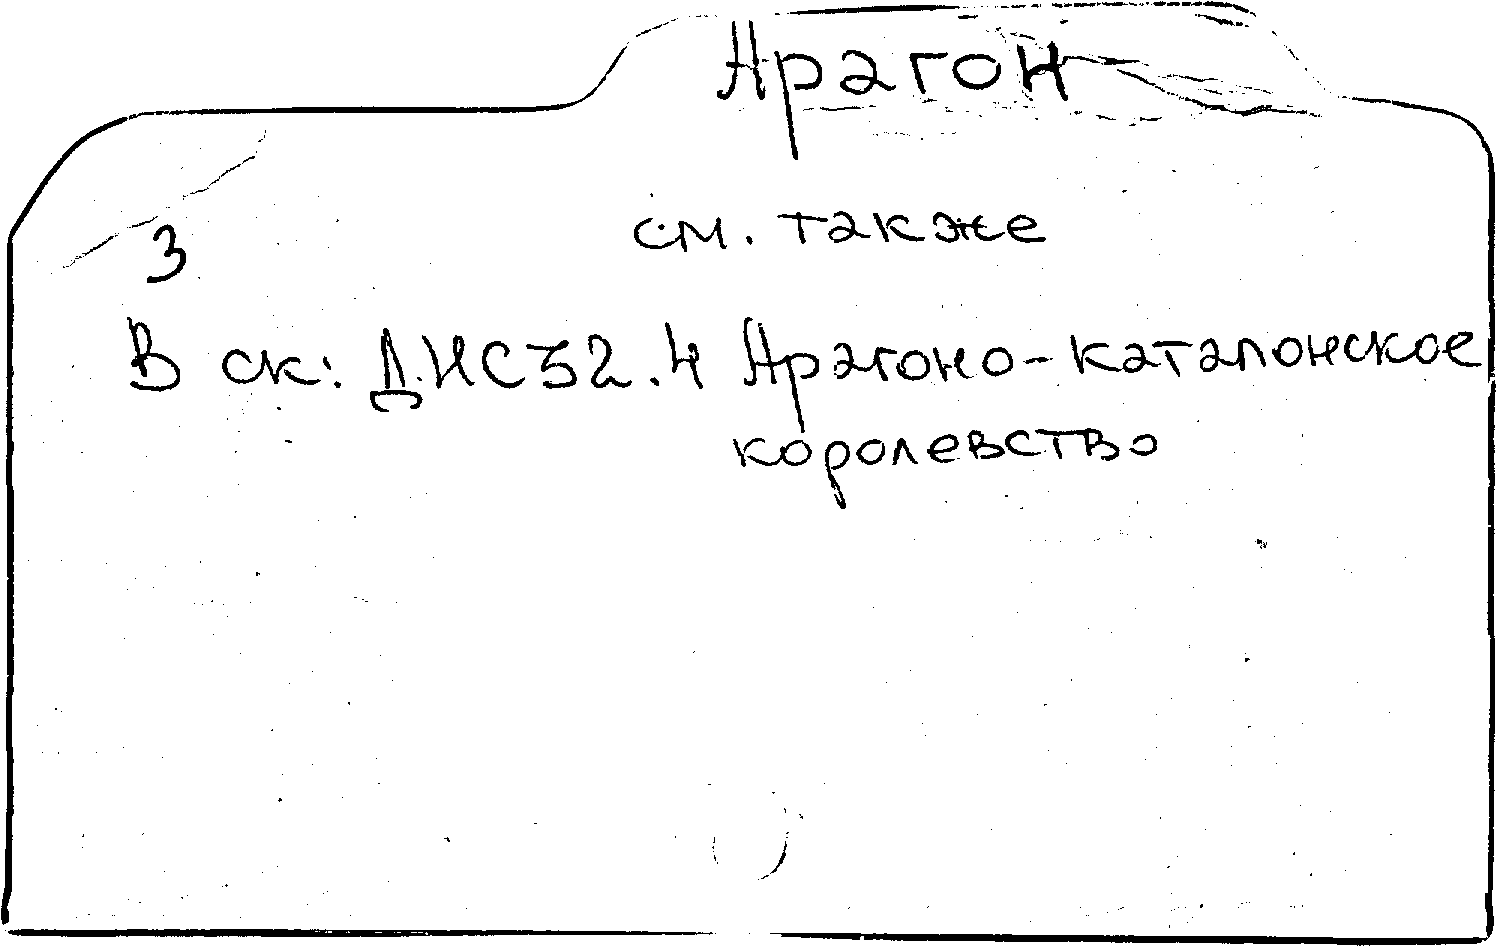 Арагон
см. также
3
В ск: Д.ИС32.4 Арагоно-каталонское
королевство